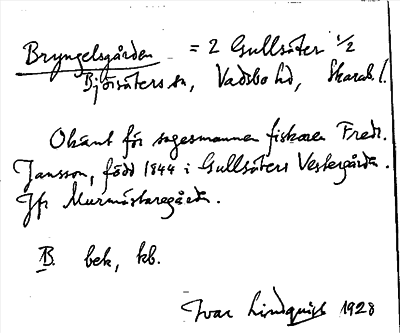 Bryngelsgården = 2 Gullsäter 1/2
Björsäters sn, Vadsbo hd, Skarab. l.
Okänt för sagesmannen fiskaren Fredr.
Jansson, född 1844 i Gullsäters Västergården.
Jfr Murmästaregården.
B. bek, kb.
Ivar Lindquist 1928